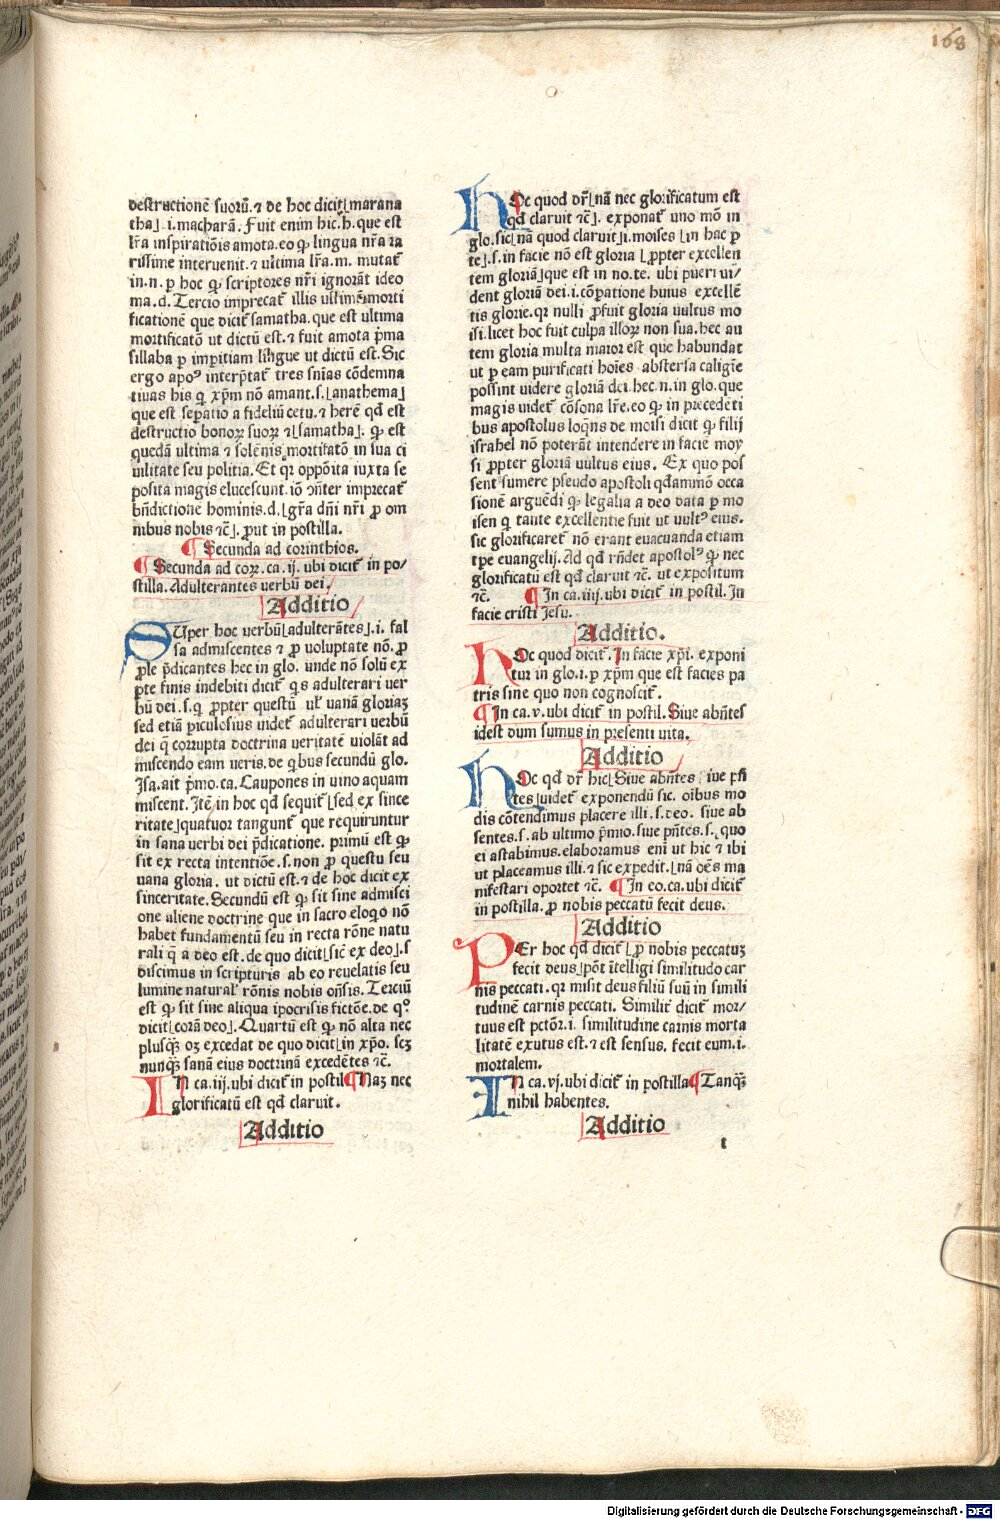 168
destructionē suoꝝ. ⁊ de hoc dicit᷑ ⌊marana
tha⌋ .i. macharā. fuit enim hic .h. que est
lr̄a inspiratiōis amota. eo ꝙ lingua nr̄a ra
rissime interuenit. ⁊ ultima lr̄a .m. mutat᷑
in .n. ꝑ hoc ꝙ scriptores nr̄i ignorāt ideo
ma.d. Tercio imprecat᷑ illis ultimā morti
ficationē que dicit᷑ samatha. que est ultima
mortificatō ut dictū est. ⁊ fuit amota pͥma
sillaba ꝑ imꝑitiam lingue ut dictū est. Sic
ergo apoꝰ interp̄tat᷑ tres sn̄ias cōdemna
tiuas his qͥ xp̄m nō amant. s. ⌊anathema⌋
que est seꝑatio a fideliū cetu. ⁊ herē qd̄ est
destructio bonoꝝ suoꝝ ⁊ ⌊samatha⌋. ꝙ est
quedā ultima ⁊ solēnis mortificatō in sua ci
uilitate seu politia. Et qꝛ oppōita iuxta se
posita magis elucescunt. iō ↄn̄ter imprecat᷑
bn̄dictione hominis. d. ⌊gr̄a dn̄i nr̄i ꝑ om
nibus nobis ⁊c̄⌋. ꝓut in postilla.
¶ Secunda ad corinthios.
¶ Secunda ad coꝝ. ca. ij. ubi dicit᷑ in po/
stilla. Adulterantes verbū dei.
Additio
SUper hoc verbū ⌊adulterātes⌋ .i. fal
sa admiscentes ⁊ ꝓ uoluptate nō. ꝓ
ꝓle p̄dicantes hec in glo. unde nō solū ex
ꝑte finis indebiti dicit᷑ qͥs adulterari uer
bū dei. s. qͥ ꝓpter questū ul᷑ uanā gloriaꝫ
sed etiā ꝑiculosius uidet᷑ adulterari uerbū
dei qͥ corrupta doctrina veritatē violāt ad
miscendo eam ueris. de qͥbus secundū glo.
Isa. ait pͥmo. ca. Caupones in uino aquam
miscent. Itē in hoc qd̄ sequit᷑ ⌊sed ex since
ritate⌋ quatuor tangunt᷑ que requiruntur
in sana uerbi dei p̄dicatione. primū est ꝙ
sit ex recta intentiōe. s. non ꝓ questu seu
uana gloria. ut dictū est. ⁊ de hoc dicit ex
sinceritate. Secundū est ꝙ sit sine admisci
one aliene doctrine que in sacro eloqͦ nō
habet fundamentū seu in recta rōne natu
rali qͣ a deo est. de quo dicit ⌊sic̄ ex deo⌋. s
discimus in scripturis ab eo reuelatis seu
lumine natural᷑ rōnis nobis oñsis. Terciū
est ꝙ sit sine aliqua ipocrisis fictōe. de qͦ
dicit ⌊corā deo⌋. Quartū est ꝙ nō alta nec
plusqͣꝫ oꝫ excedat de quo dicit ⌊in xp̄o. scꝫ
nunqͣꝫ sanā eius doctrinā excedētes ⁊c̄.
IN ca. iij. ubi dicit᷑ in postil ¶ Naꝫ nec
glorificatū est qd̄ claruit.
Additio
HOc quod dr̄ ⌊nā nec glorificatum est
qd̄ claruit ⁊c̄⌋. exponat᷑ uno mō in
glo. sic ⌊nā quod claruit⌋ .i. moises ⌊in hac ꝑ
te⌋ .s. in facie nō est gloria ⌊ꝓpter excellen
tem gloriā⌋ que est in no. te. ubi pueri ui/
dent gloriā dei .i. cōꝑatione huius excellē
tis glorie. qꝛ nulli ꝓfuit gloria uultus mo
isi. licet hoc fuit culpa illoꝝ non sua. hec au
tem gloria multa maior est que habundat
ut ꝑ eam purificati hoīes abstersa caligīe
possint uidere gloriā dei. hec .n. in glo. que
magis uidet᷑ cōsona lr̄e. eo ꝙ in precedēti
bus apostolus loqn̄s de moisi dicit ꝙ filij
israhel nō poterāt intendere in faciē moy
si ꝓpter gloriā uultus eius. Ex quo pos
sent sumere pseudo apostoli qd̄ammō occa
sionē arguēdi ꝙ legalia a deo data ꝑ mo
isen qͥ tante excellentie fuit ut uultꝰ eius.
sic glorificaret᷑ nō erant euacuanda etiam
tp̄e euangelij. Ad qd̄ rn̄det apostolꝰ ꝙ nec
glorificatū est qd̄ claruit ⁊c̄. ut expositum
⁊c̄. ¶ In ca. iiij. ubi dicit᷑ in postil. In
facie cristi Jesu.
Additio.
HOc quod dicit᷑. In facie xp̄i. exponi
tur in glo. i. ꝑ xp̄m que est facies pa
tris sine quo non cognoscit᷑.
¶ In ca. v. ubi dicit᷑ in postil. Siue abn̄tes
idest dum sumus in presenti uita.
Additio
HOc qd̄ dr̄ hic ⌊Siue abn̄tes siue p̄n
tes⌋ uidet᷑ exponendū sic. oībus mo
dis cōtendimus placere illi. s. deo. siue ab
sentes. s. ab ultimo pͥmio. siue pn̄tes. s. quo
ei astabimus. elaboramus eni ut hic ⁊ ibi
ut placeamus illi. ⁊ sic expedit. ⌊nā oēs ma
nifestari oportet ⁊c̄. ¶ In eo. ca. ubi dicit᷑
in postilla. ꝑ nobis peccatū fecit deus.
Additio
PEr hoc qd̄ dicit᷑ ⌊ꝓ nobis peccatuꝫ
fecit deus⌋ pōt ītelligi similitudo car
nis peccati. qꝛ misit deus filiū suū in simili
tudinē carnis peccati. Similit᷑ dicit᷑ mor/
tuus est pctōꝝ. i. similitudine carnis morta
litatē exutus est. ⁊ est sensus. fecit eum .i.
mortalem.
IN ca. vj. ubi dicit᷑ in postilla ¶ Tanqͣꝫ
nihil habentes.
Additio
Digitalisierung gefördert durch die Deutsche Forschungsgemeinschaft - DFG